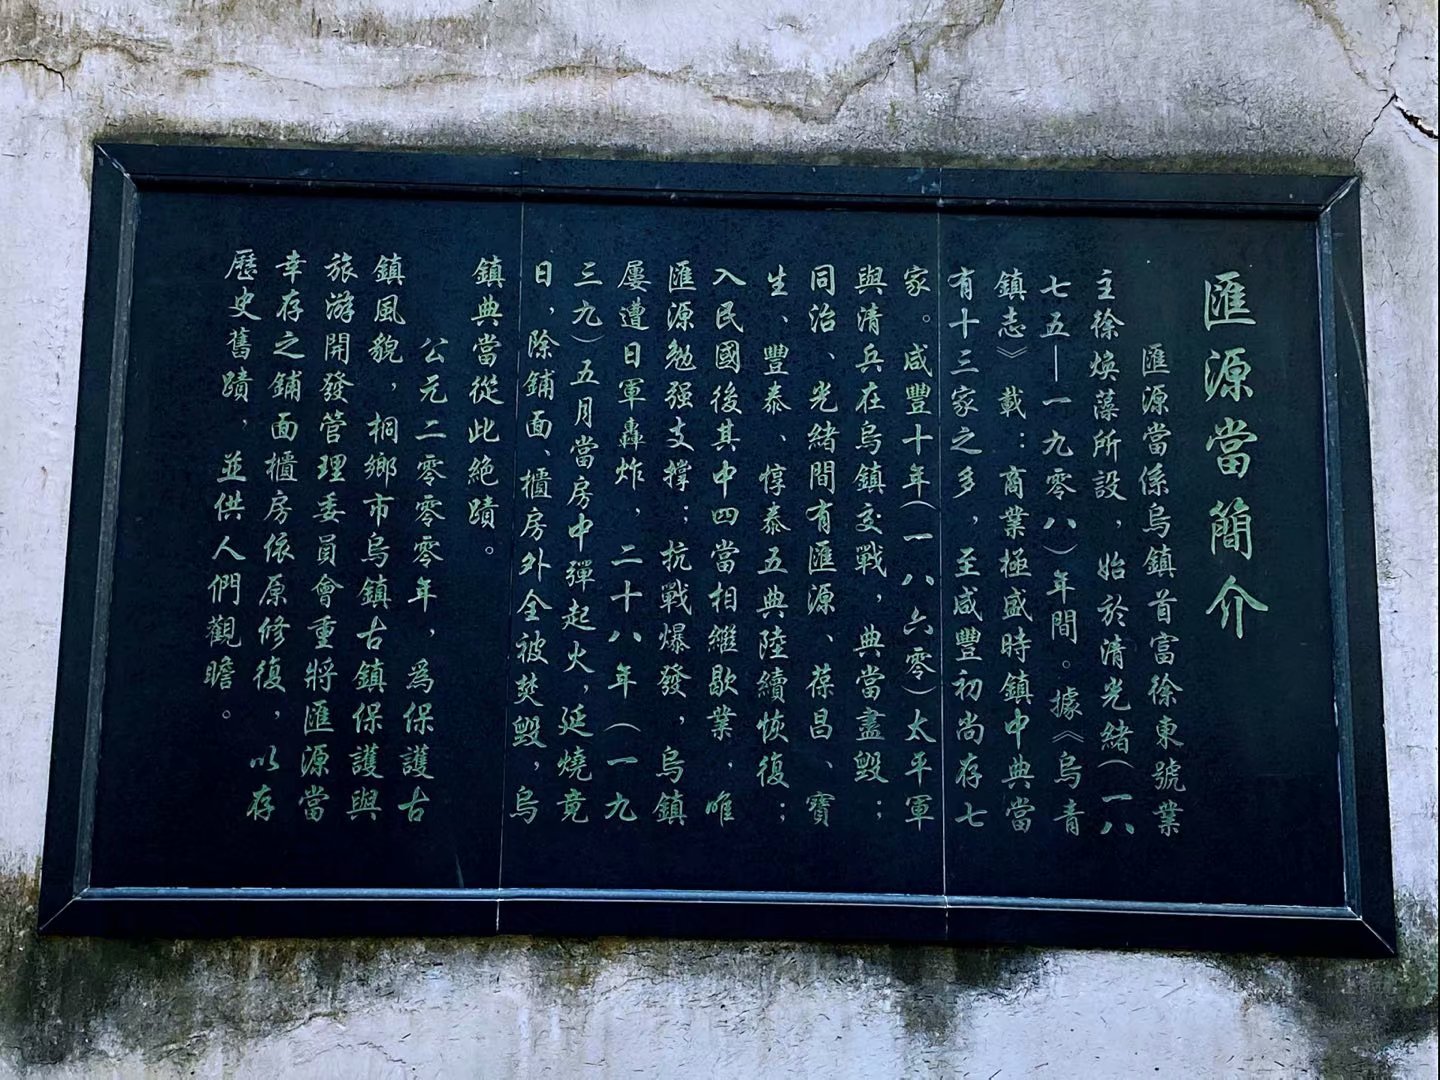 匯源當簡介
匯源當係烏鎮首富徐東號業
主徐煥藻所設，始於清光緒（一八
七五—一九零八）年間。據《烏青
鎮志》載：商業極盛時鎮中典當
有十三家之多，至咸豐初尚存七
家。咸豐十年（一八六零）太平軍
與清兵在烏鎮交戰，典當盡毀；
同治、光緒間有匯源、葆昌、寶
生、豐泰、惇泰五典陸續恢復；
入民國後其中四當相繼歇業，唯
匯源勉强支撐；抗戰爆發，烏鎮
屢遭日軍轟炸，二十八年（一九
三九）五月當房中彈起火，延燒竟
日，除鋪面、櫃房外全被焚毀，烏
鎮典當從此絕蹟。
公元二零零零年，爲保護古
鎮風貌，桐鄉市烏鎮古鎮保護與
旅游開發管理委員會重將匯源當
幸存之鋪面櫃房依原修復，以存
歷史舊蹟，並供人們觀瞻。